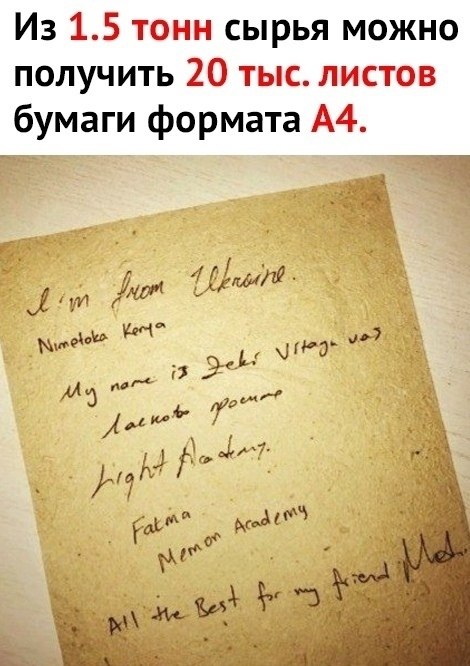 Из 1.5 тонн сырья можно
получить 20 тыс. листов
бумаги формата А4.
I'm from Ukraine.
Nimetoka Kenya
My name is Zeki Vitayu vas
Ласкаво просимо
Light Academy.
Fatma
Memon Academy
All the Best for my friend